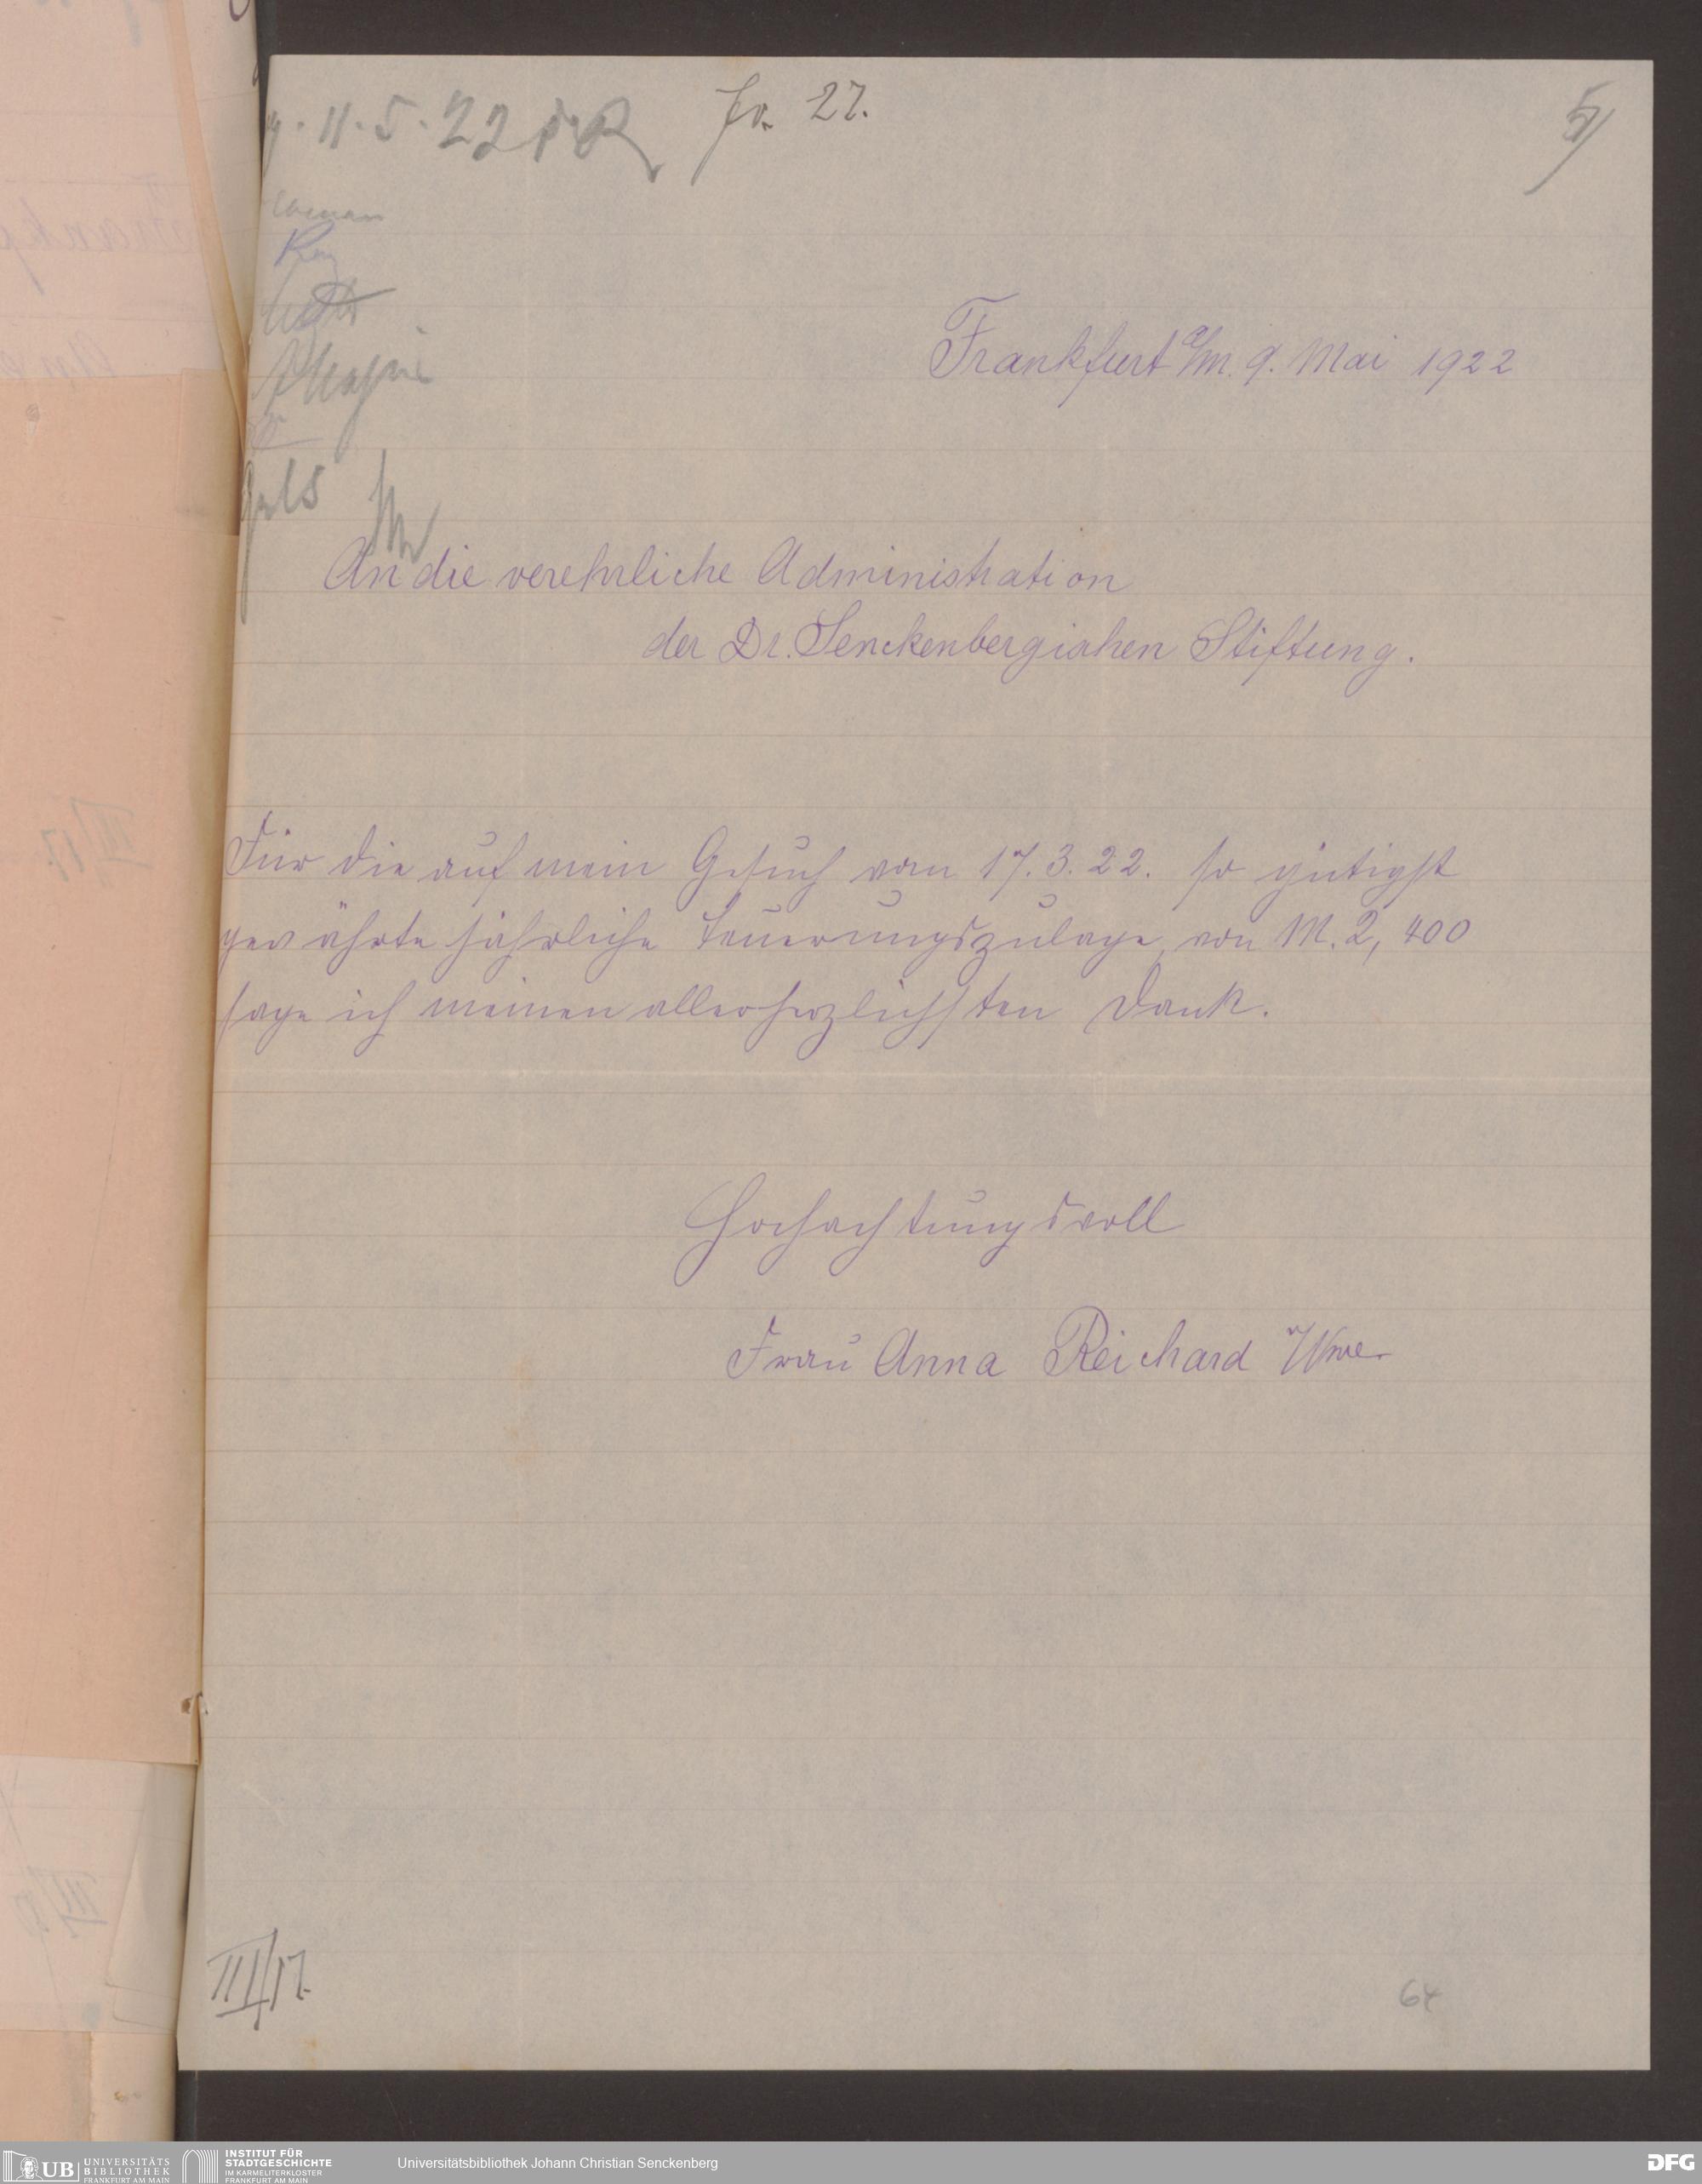 11.5.22
Jv. 27.
5/
Frankfurt a/m. 9. Mai 1922
An die verehrliche Administration
der Dr. Senckenbergischen Stiftung.
Für die auf mein Gesuch vom 17.3.22. so gütigst
gewährte jährliche Teuerungszulage von M. 2,400
sage ich meinen allerherzlichsten Dank.
Hochachtungsvoll
Frau Anna Reichard Wwe.
III/17.
64
UB UNIVERSITÄTS
BIBLIOTHEK
FRANKFURT AM MAIN
INSTITUT FÜR
STADTGESCHICHTE
IM KARMELITERKLOSTER
FRANKFURT AM MAIN
Universitätsbibliothek Johann Christian Senckenberg
DFG